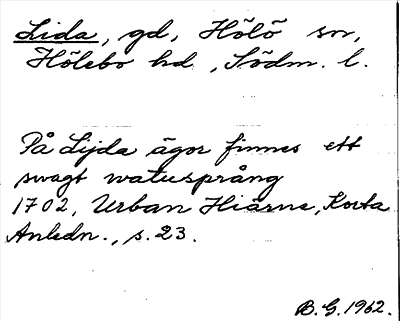 Lida, gd, Hölö sn,
Hölebo hd, Södm. l.
På Lijda ägor finnes ett
swagt watusprång
1702, Urban Hiärne, Korta
Anledn., s. 23.
B.G. 1962.